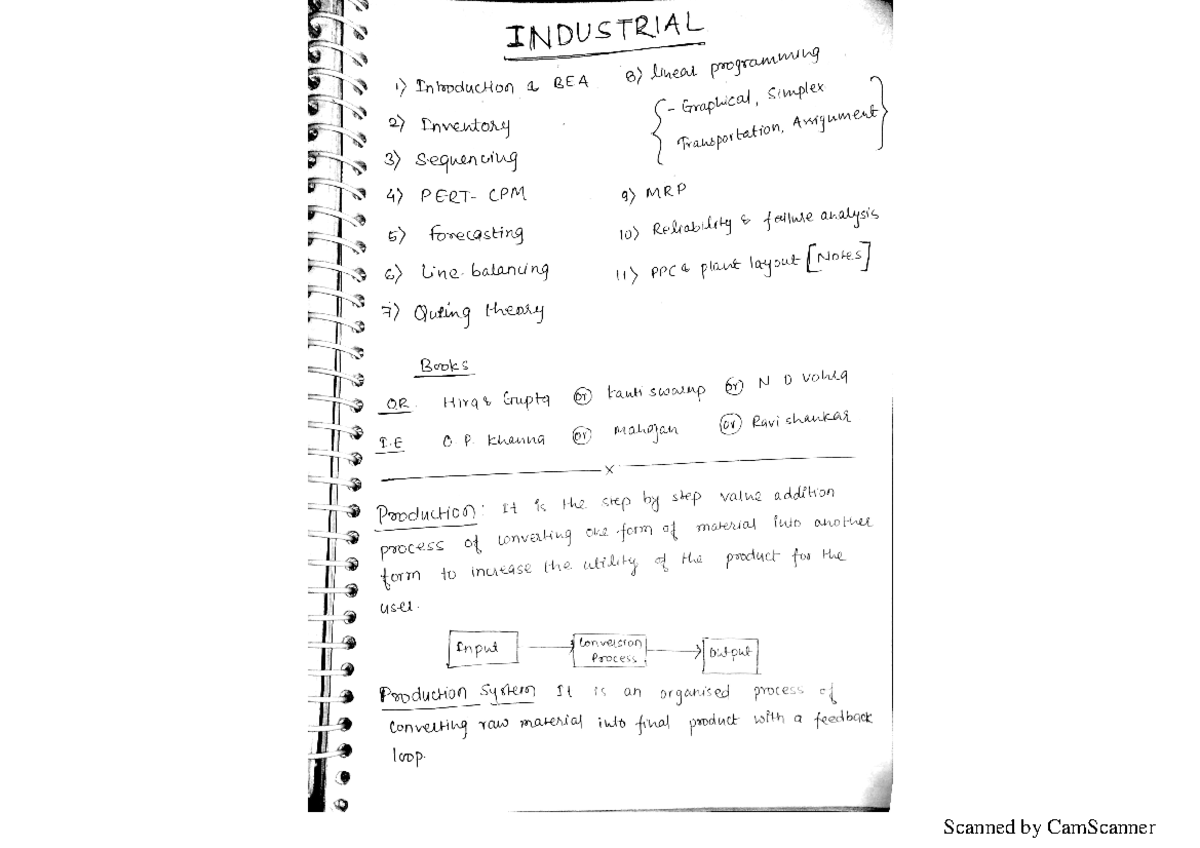 INDUSTRIAL
1) Introduction & BEA
2) Inventory
3) Sequencing
4) PERT- CPM
5) forecasting
6) Line balancing
7) Quting theory
8) linear programming
- Graphical, Simplex
Transportation, Assignment
9) MRP
10) Reliability & failure analysis
11) PPC & plant layout [Notes]
Books
O.R. Hira & Gupta or Kanti swarup or N D Vohra
I.E O P. Khanna or Mahajan or Ravi shankar
x
Production: It is the step by step value addition
process of converting one form of material into another
form to increase the utility of the product for the
user.
Input Conversion Process Output
Production System It is an organised process of
converting raw material into final product with a feedback
loop.
Scanned by CamScanner